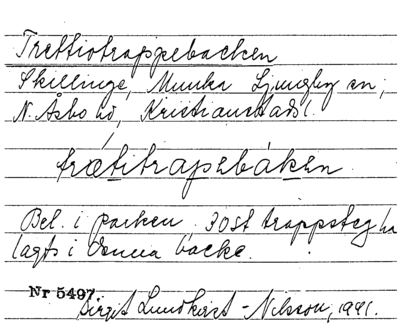 Trettiotrappebacken
Skillinge, Munka Ljungby sn,
N. Åsbo hd, Kristianstads l.
trætitrapəbákən
Bel. i parken. 30 st trappsteg ha
lagts i denna backe.
Nr 5497
Birgit Lundkvist-Nilsson, 1941.